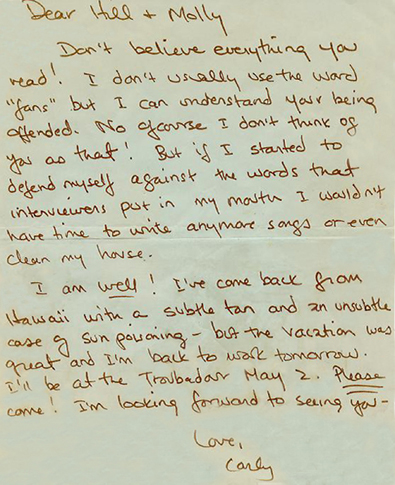 Dear Hill + Molly
Don't believe everything you
read! I don't usually use the word
"fans" but I can understand your being
offended. No ofcourse I don't think of
you as that! But if I started to
defend myself against the words that
interviewers put in my mouth I wouldn't
have time to write anymore songs or even
clean my house.
I am well! I've come back from
Hawaii with a subtle tan and an unsubtle
case of sun poisoning - but the vacation was
great and I'm back to work tomorrow.
I'll be at the Troubador May 2. Please
come! I'm looking forward to seeing you-
Love,
Carly